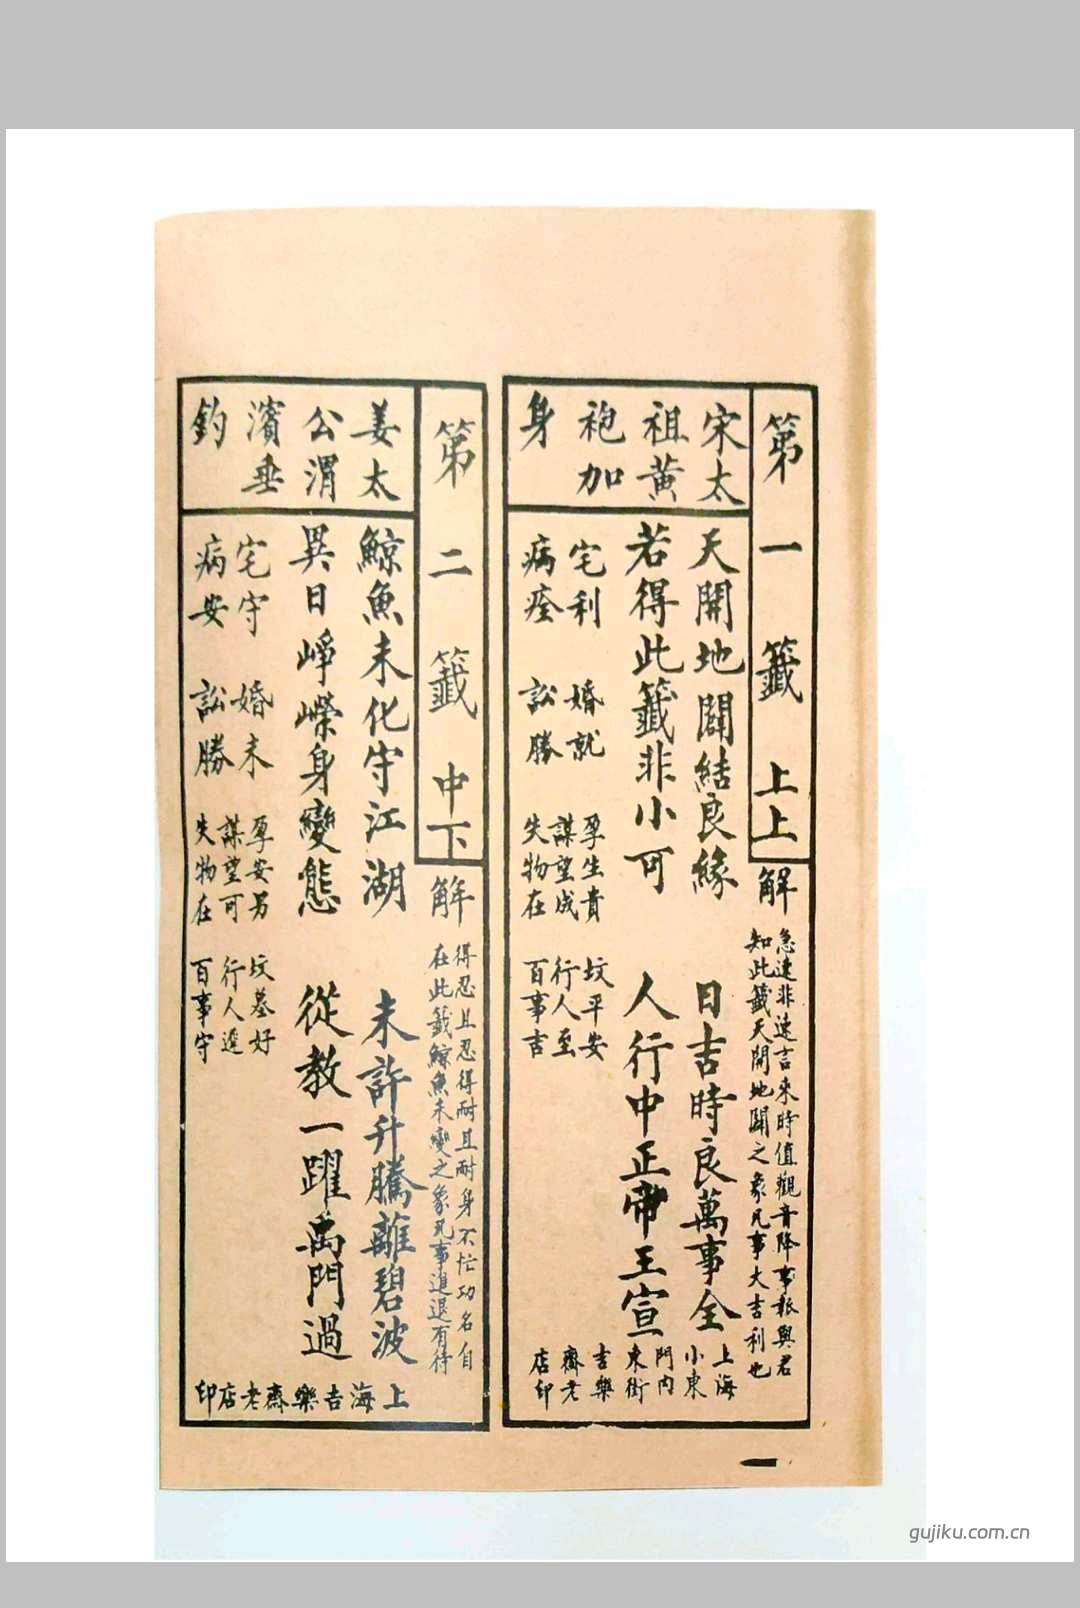 第一籤 上上
解
急速非速言來時值觀音降事報與君
知此籤天開地闢之象凡事大吉利也
宋太
祖黃
袍加
身
天開地闢結良緣 日吉時良萬事全
若得此籤非小可 人行中正帝王宣
宅利 婚就 孕生貴 坟平安
謀望成 行人至
病痊 訟勝 失物在 百事吉
上海
小東
門內
東街
吉樂
齋老
店印
一
第二籤 中下
解
得忍且忍得耐且耐身不忙功名自
在此籤鯨魚未變之象凡事進退有待
姜太
公渭
濱垂
釣
鯨魚未化守江湖 未許升騰離碧波
異日崢嶸身變態 從教一躍禹門過
宅守 婚未 孕安 坟墓好
謀望可 行人進
病安 訟勝 失物在 百事守
上海吉樂齋老店印
gujiku.com.cn